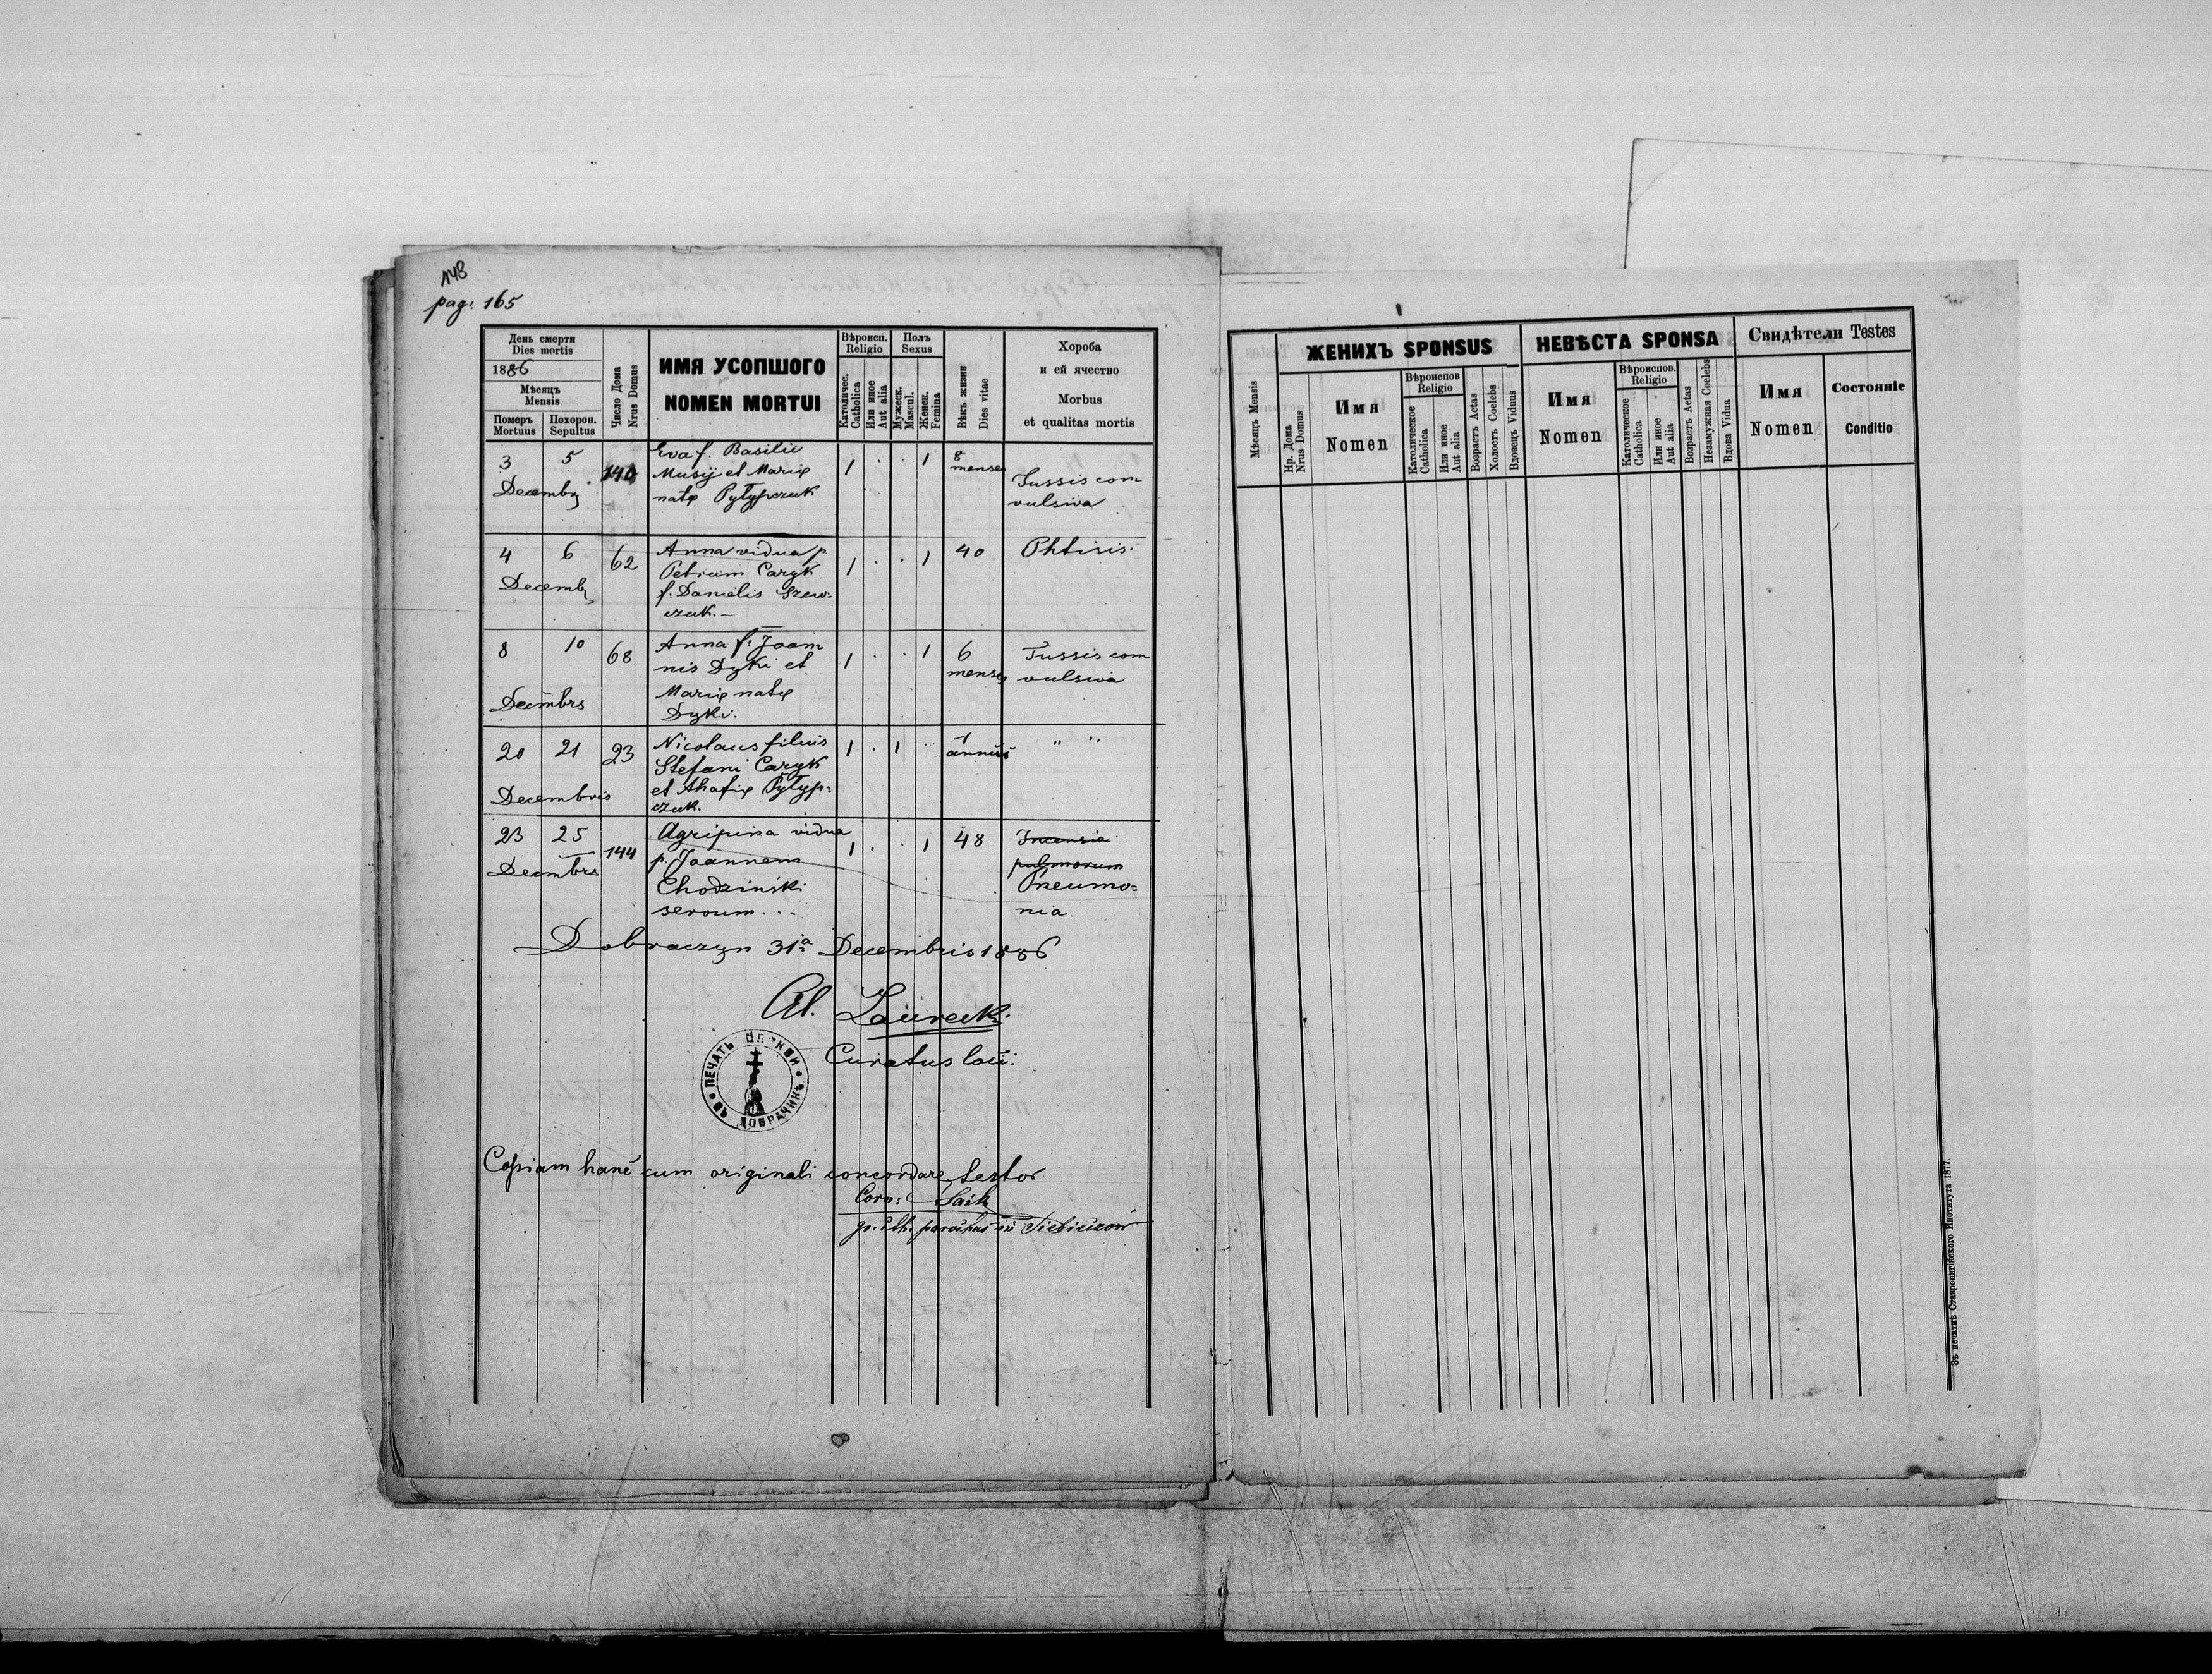 148
pag: 165
День смерти
Dies mortis
1886
Мѣсяцъ
Mensis
Померъ
Mortuus
Похорон.
Sepultus
Число Дома
Nrus Domus
ИМЯ УСОПШОГО
NOMEN MORTUI
Вѣроисп.
Religio
Католичес.
Catholica
Или иное
Aut alia
Полъ
Sexus
Мужеск.
Mascul.
Женск.
Femina
Вѣкъ жизни
Dies vitae
Хороба
и ей ячество
Morbus
et qualitas mortis
3 5 140 Eva f. Basilii 1 . . 1 8
Musij et Mariæ menses
Decembr natæ Pytypczuk Tussis con
vulsiva
4 6 62 Anna vidua p. 1 . . 1 40 Phtisis.
Petrum Caryk
Decemb f. Danielis Szew-
czuk. —
8 10 68 Anna f. Joan 1 . . 1 6 Tussis con
nis Dyki et menses vulsiva
Decmbrs Mariæ natæ
Dyki.
20 21 23 Nicolaus filius 1 . 1 .. 1 " "
Stefani Caryk
Decembris et Ahafiæ Pytyp=
czuk.
23 25 144 Agripina vidua 1 . . 1 48
Decmbrs p. Joannem pulmorum
Chodzinski Pneumo=
servum... nia.
Dobraczyn 31ª Decembris 1886
Al. Laurecki
Curatus loci:
ПЕЧАТЬ ЦЕРКВИ ВЪ ДОБРАЧИНѢ
Copiam hanc cum originali concordare testor
Corn:
gr. cth. parochus in
ЖЕНИХЪ SPONSUS
НЕВѢСТА SPONSA
Свидѣтели Testes
Мѣсяцъ Mensis
Нр. Дома
Nrus Domus
Имя
Nomen
Вѣроиспов
Religio
Католическое
Catholica
Или иное
Aut alia
Возрастъ Aetas
Холостъ Coelebs
Вдовецъ Viduus
Имя
Nomen
Вѣроиспов.
Religio
Католическое
Catholica
Или иное
Aut alia
Возрастъ Aetas
Незамужная Coelebs
Вдова Vidua
Имя
Nomen
Состояніе
Conditio
Зъ печатнѣ Ставропигійского Института 1877.